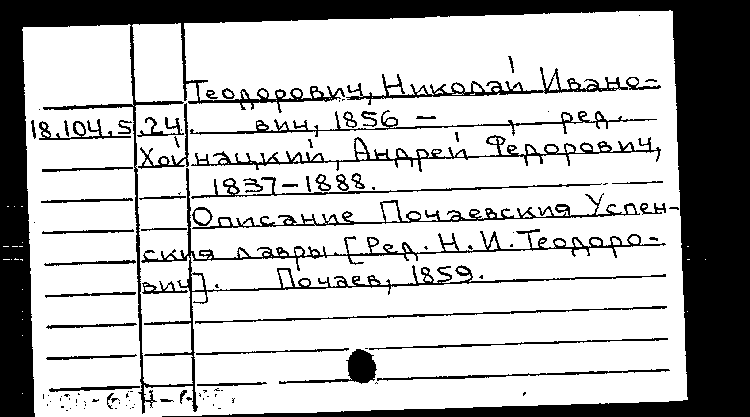 Теодорович, Николай Ивано-
18.104.5.24. вич, 1856 – , ред.
Хойнацкий, Андрей Федорович,
1837–1888.
Описание Почаевския Успен-
ския лавры. [Ред. Н. И. Теодоро-
вич]. Почаев, 1859.